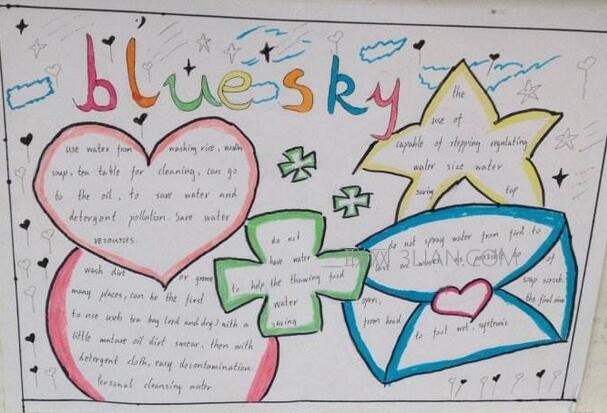 blue sky
use water from washing rice, noodle
soup, tea table for cleaning, can go
to the oil, to save water and
detergent pollution. Save water
resources.
the
use of
capable of stepping regulating
water size water
saving tap
do not
have water
to help the thawing food
water
saving
wash dirt or grease
many places, can be the first
to use used tea bag (red and dry) with a
little mature oil dirt smear, then with
detergent cloth, easy decontamination
Personal cleansing water
do not spray water from first to
of
soap scrub.
the final rinse
open,
from head
to foot wet, systemic
3LAN.COM